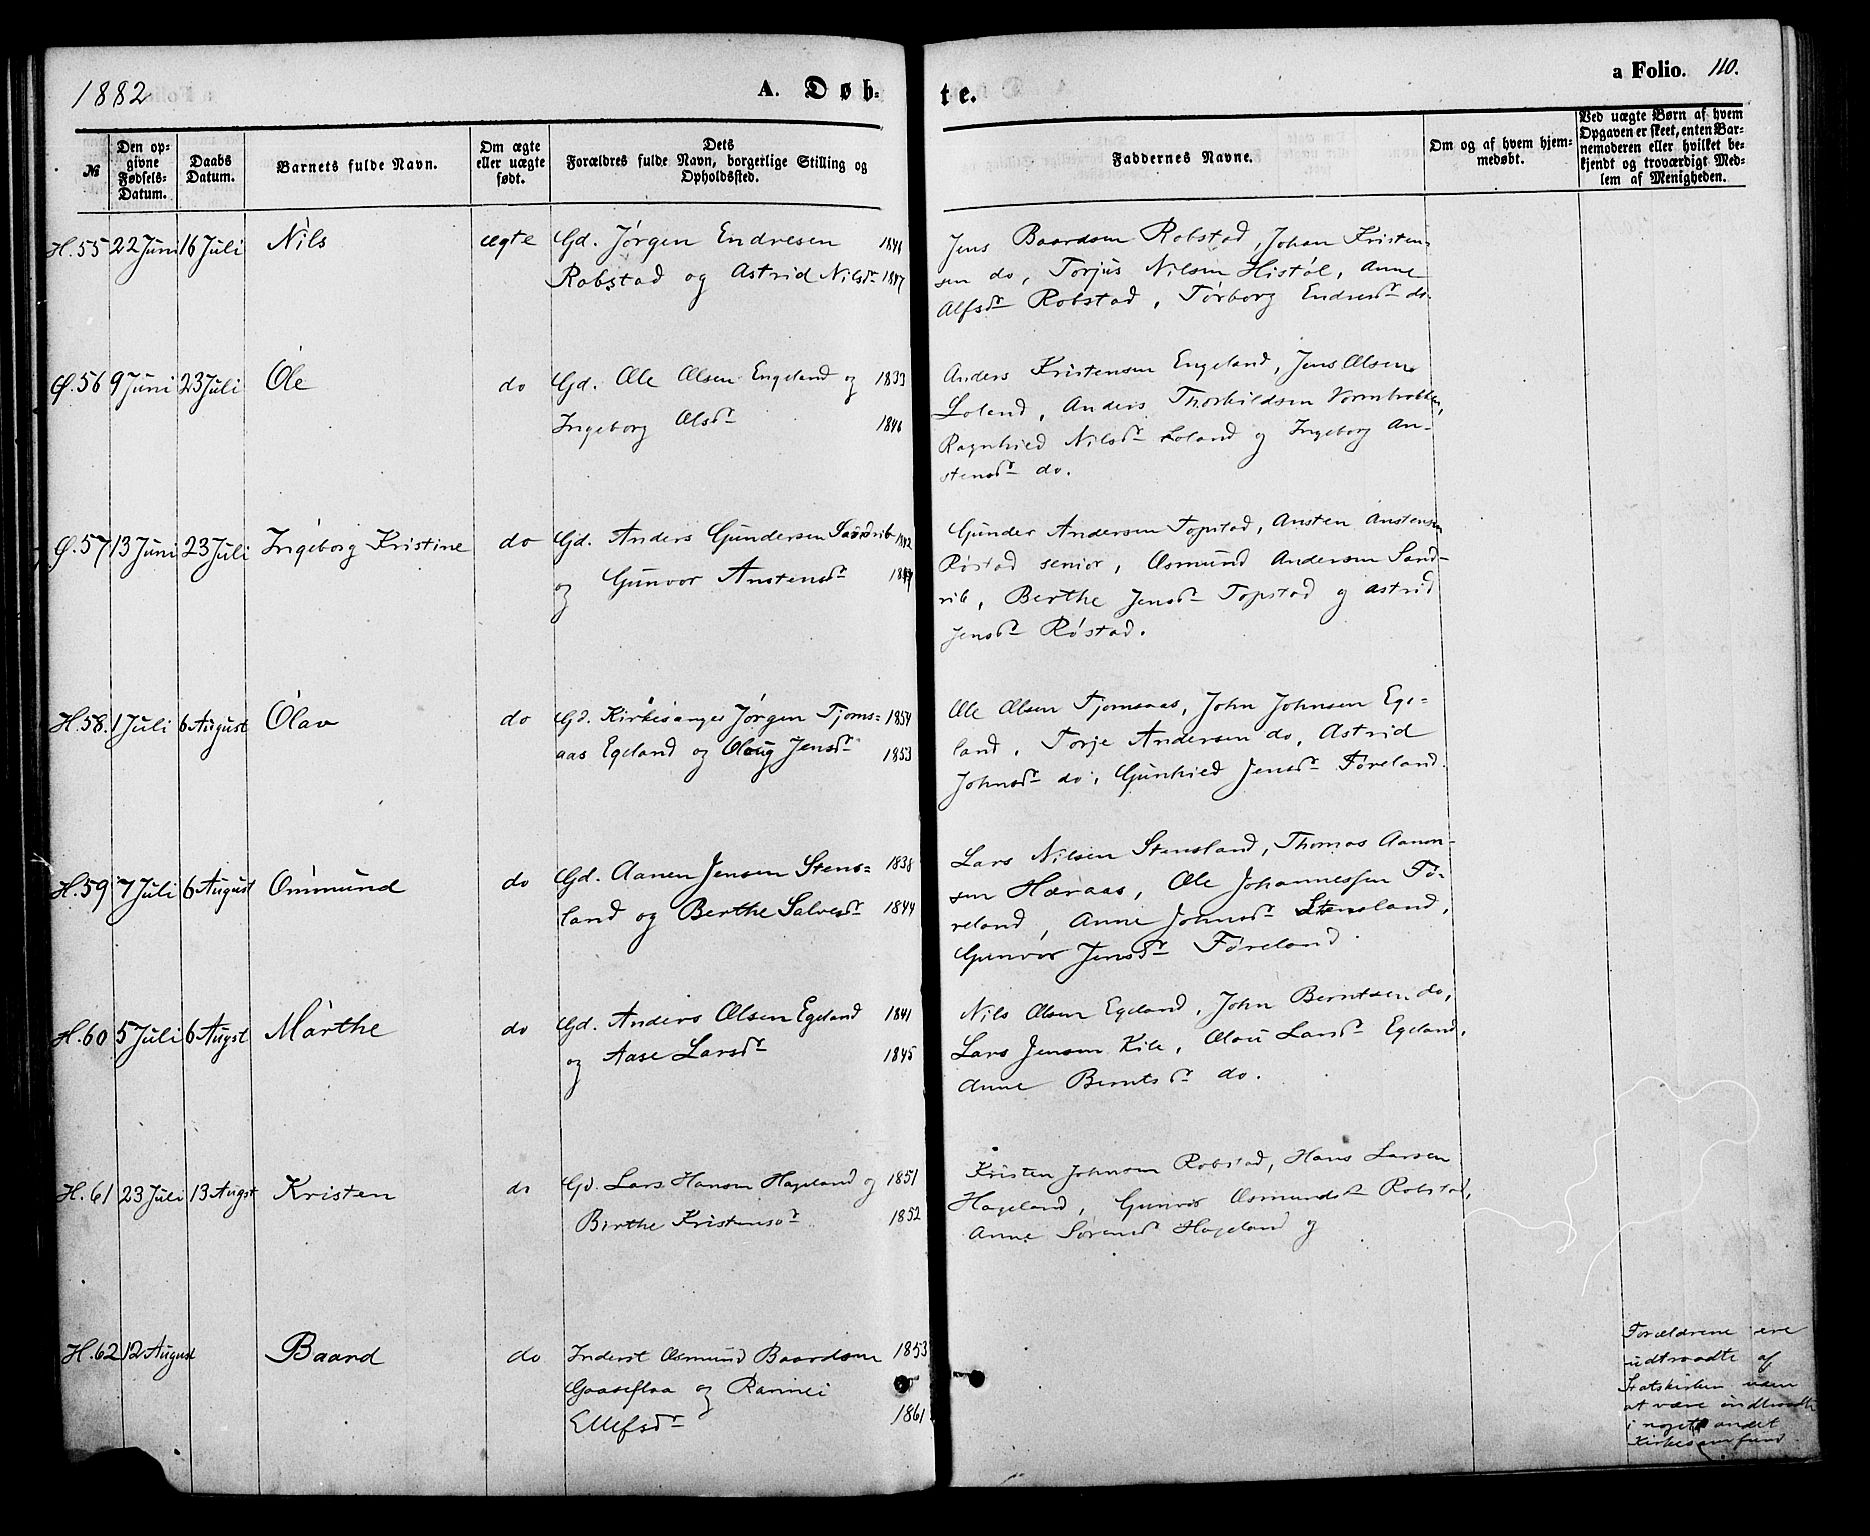 1882
A. Døb-
te.
a Folio. 110.
№
Den op-
givne
Fødsels-
Datum.
Daabs
Datum.
Barnets fulde Navn.
Om ægte
eller uægte
født.
Dets
Forældres fulde Navn, borgerlige Stilling og
Opholdssted.
Faddernes Navne.
Om og af hvem hjem-
medøbt.
Ved uægte Børn af hvem
Opgaven er skeet, enten Bar-
nemoderen eller hvilket be-
kjendt og troværdigt Med-
lem af Menigheden.
H. 55 22 Juni 16 Juli Nils ægte Gd. Jørgen Endresen
Robstad og Astrid Nilsdr 1847
Jens Baardsen Robstad, Johan Kristen-
sen do, Torjus Nilsen Histøl, Anne
Alfsdr Robstad, Torborg Endresdr do.
Ø. 56 9 Juni 23 Juli Ole do Gd. Ole Olsen Engeland og 1833
Ingeborg Olsdr 1846
Anders Kristensen Engeland, Jens Olsen
Loland, Anders Thorkildsen
Ragnhied Nilsdr Loland og Ingeborg An-
stensdr do.
Ø. 57 13 Juni 23 Juli Ingeborg Kristine do Gd. Anders Gundersen Sandrib
og Gunvor Anstensdr
Gunder Andersen Topstad, Ansten Anstensen
Røstad senior, Osmund Andersen Sand-
rib, Berthe Jensdr Topstad og Astrid
Jensdr Røstad.
H. 58. 1 Juli 6 August Olav do Gd. Kirkesanger Jørgen Tjoms- 1854
aas Egeland og Oloug Jensdr 1853
Ole Olsen Tjomsaas, John Johnsen Ege-
land, Torje Andersen do, Astrid
Johnsdr do, Gunhied Jensdr Føreland.
H. 59 7 Juli 6 August Ommund do Gd. Aanen Jensen Stens- 1838
land og Berthe Salvesdr 1844
Lars Nilsen Stensland, Thomas Aanon-
sen Høraas, Ole Johannessen Fø-
reland, Anne Johnsdr Stensland,
Gunvor Jensdr Føreland.
H. 60 5 Juli 6 Augst Marthe do Gd. Anders Olsen Egeland 1841
og Aase Larsdr 1845
Nils Olsen Egeland, John Berntsen do,
Lars Jensen Kile, Olou Larsdr Egeland,
Anne Berntsdr do.
H. 61 23 Juli 13 Augst Kristen do Gd. Lars Hansen Hageland og 1851
Birthe Kristensdr 1852
Kristen Johnsen Robstad, Hans Larsen
Hageland, Gunvor Osmundsdr Robstad,
Anne Sørensdr Hageland og
H. 62 12 August Baard do Inderst Osmund Baardsen 1853
Gaaseflaa og Rannei
Ellefsdr 1861
Forældrene ere
udtraadte af
Statskirken uden
at være indtraadte
i noget andet
Kirkesamfund.